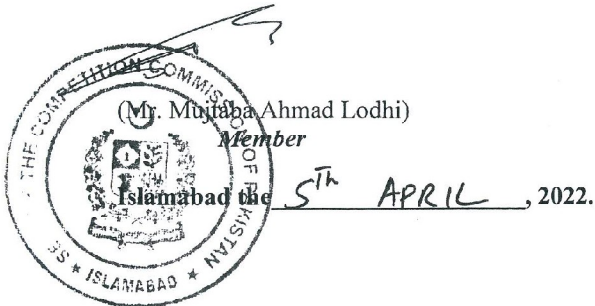 THE COMPETITION COMMISSION OF PAKISTAN
(Mr. Mujtaba Ahmad Lodhi)
Member
Islamabad the 5Th APRIL, 2022.
* ISLAMABAD *